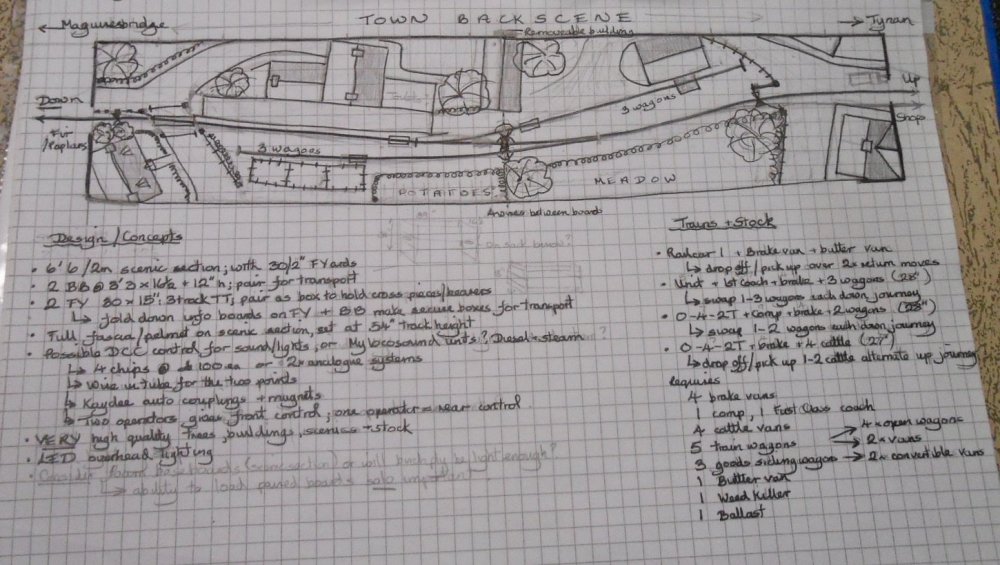 ← Maguiresbridge
TOWN BACKSCENE
→ Tynan
Removeable building
Down
Up
3 wagons
Shop
3 wagons
POTATOES
MEADOW
between boards
Design/Concepts
• 6'6/2m scenic section; with 30/2" FYards
• 2 BB @ 3'3 x 16½ + 12"h; pair for transport
• 2 FY 30 x 15", 3 track TT; pair as box to hold cross pieces/bearers
↳ fold down info boards on FY + BB make secure boxes for transport
• Full fascia/pelmet on scenic section, set at 54" track height
• Possible DCC control for sound/lights, or Mylocosound units? Diesel + steam
↳ 4 chips @ £100 ea or 2x analogue systems
↳ wire in tube for the two points
↳ Kaydee auto couplings + magnets
↳ Two operators gives front control; one operator = rear control
• VERY high quality trees, buildings, scenics + stock
• LED overhead lighting
• Consider foam baseboards (scenic section) or will birch ply be light enough?
↳ ability to load paired boards
Trains + Stock
• Railcar 1 + Brake van + butter van
↳ drop off/pick up over 2x return moves
• Unit + 1st coach + brake + 3 waggons (28")
↳ swap 1-3 wagons each down journey
• 0-4-2T + Comp + brake + 2 wagons (28")
↳ swap 1-2 wagons each down journey
• 0-4-2T + brake + 4 cattle (27")
↳ drop off/pick up 1-2 cattle alternate up journey
Requires
4 brake vans
1 comp, 1 First Class coach
4 cattle vans
5 train wagons → 4 x open wagons
→ 2 x vans
3 goods siding wagons → 2 x convertible vans
1 Butter van
1 Weed Killer
1 Ballast